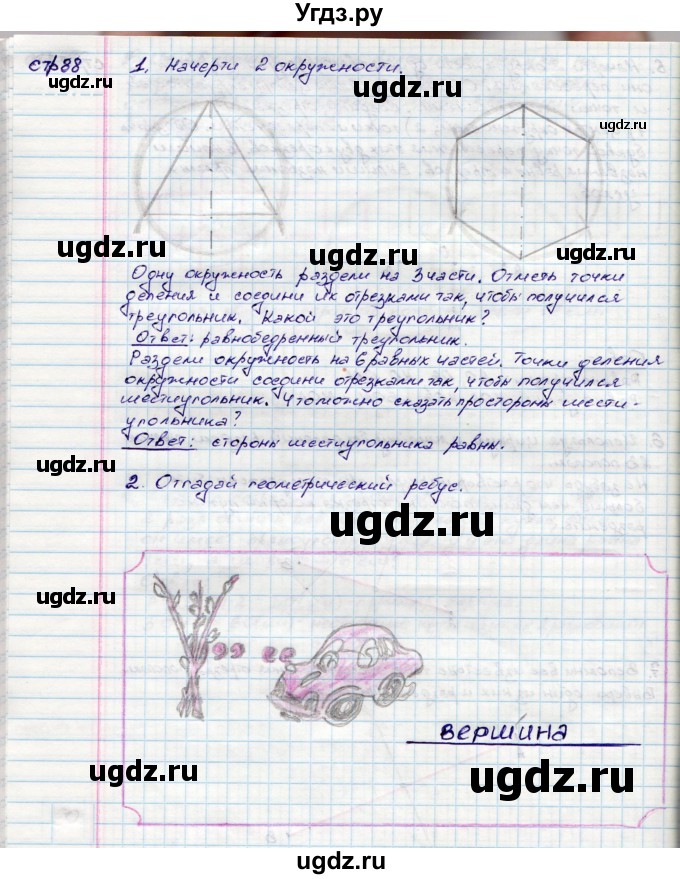 Угдз.ру
стр 88 1. Начерти 2 окружности.
ugdz.ru
ugdz.ru
ugdz.ru
ugdz.ru
Одну окружность раздели на 3 части. Отметь точки
деления и соедини их отрезками так, чтобы получился
треугольник. Какой это треугольник?
ugdz.ru
Ответ: равнобедренный треугольник.
Раздели окружность на 6 равных частей. Точки деления
окружности соедини отрезками так, чтобы получился
шестиугольник. Что можно сказать про стороны шести-
угольника?
ugdz.ru
Ответ: стороны шестиугольника равны.
ugdz.ru
2. Отгадай геометрический ребус.
ugdz.ru
ugdz.ru
вершина
ugdz.ru
ugdz.ru
ugdz.ru